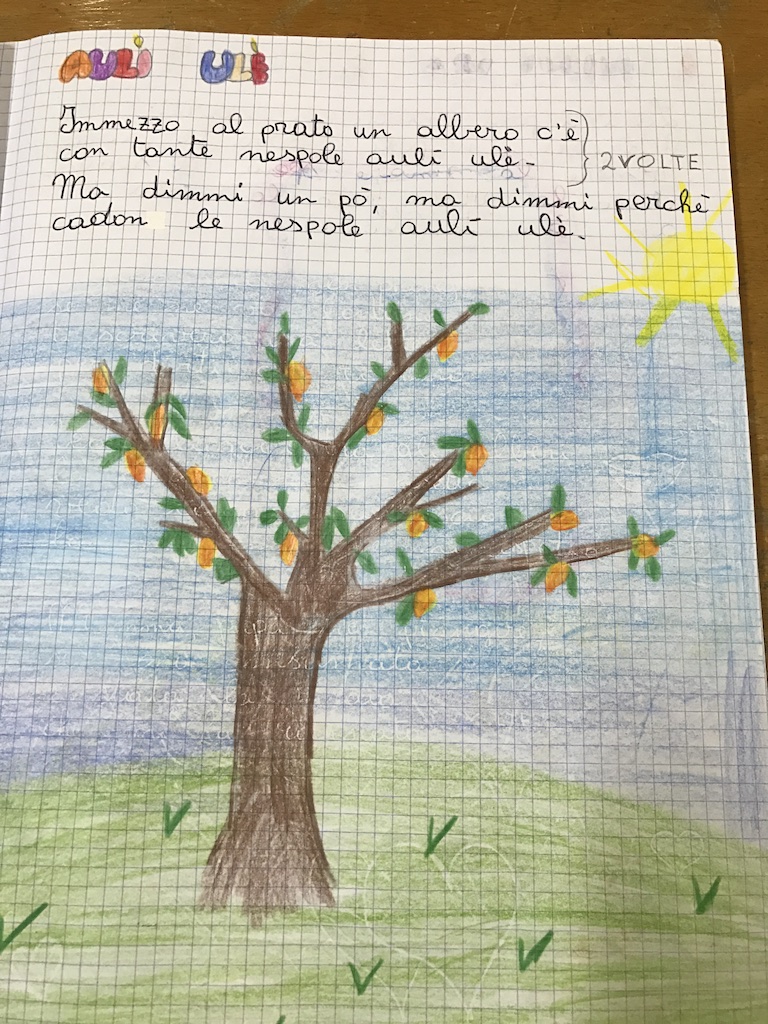 AULÌ ULÈ
Immezzo al prato un albero c'è
con tante nespole aulì ulè.
2 VOLTE
Ma dimmi un pò, ma dimmi perchè
cadon le nespole aulì ulè.